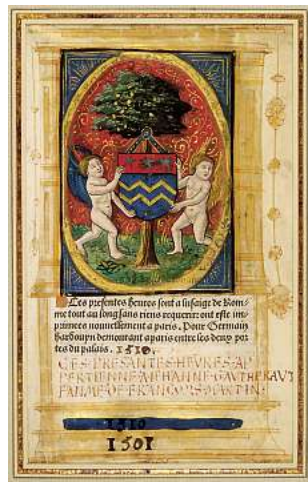 Ces presentes heures sont a lusaige de Rom-
me tout au long sans riens requerir: ont este im-
primees nouvellement a paris. Pour Germain
hardouyn demourant a paris entre les deux por-
tes du palais. 1510.
CES PRESANTES HEURES AP
PERTIENNE A JEHANNE GAUTHERAUT
FAMME DE FRANCOIS MARTIN
1510
1501